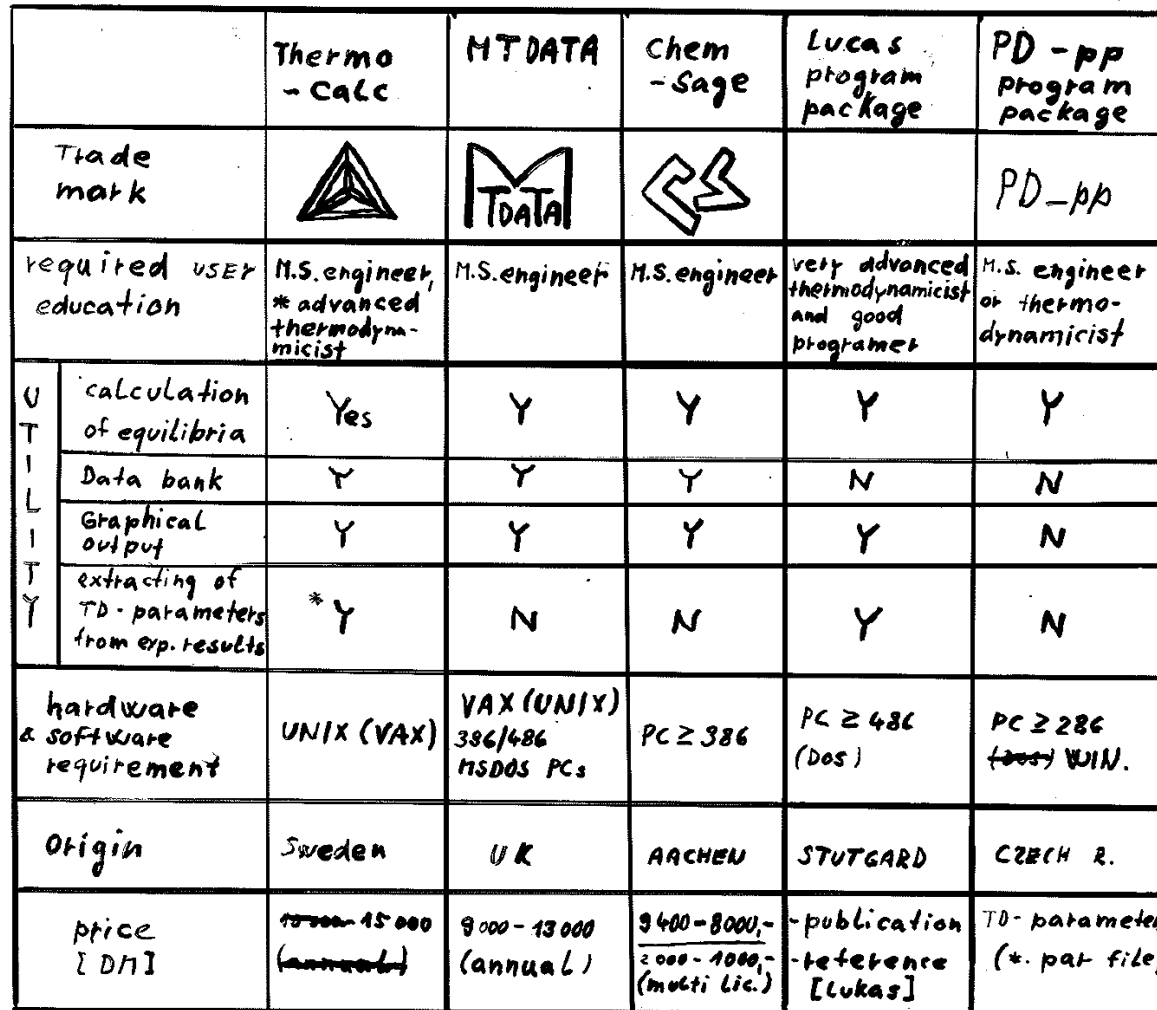 Thermo
- Calc
MTDATA
Chem
- Sage
Lucas
program
package
PD - pp
program
package
Trade
mark
MTDATA
PD_pp
required user
education
M.S. engineer,
* advanced
thermodyna-
micist
M.S. engineer
M.S. engineer
very advanced
thermodynamicist
and good
programer
M.S. engineer
or thermo-
dynamicist
UTILITY
calculation
of equilibria
Yes
Y
Y
Y
Y
Data bank
Y
Y
Y
N
N
Graphical
output
Y
Y
Y
Y
N
extracting of
TD - parameters
from exp. results
* Y
N
N
Y
N
hardware
& software
requirement
UNIX (VAX)
VAX (UNIX)
386/486
MSDOS PCs
PC ≥ 386
PC ≥ 486
(Dos)
PC ≥ 286
(Dos) WIN.
Origin
Sweden
UK
AACHEN
STUTGARD
CZECH R.
price
[DM]
- 15 000
(annual)
9 000 - 13 000
(annual)
9 400 - 8000,-
2 000 - 1000,-
(multi Lic.)
- publication
- reference
[Lukas]
TD - parameter
(*. par file